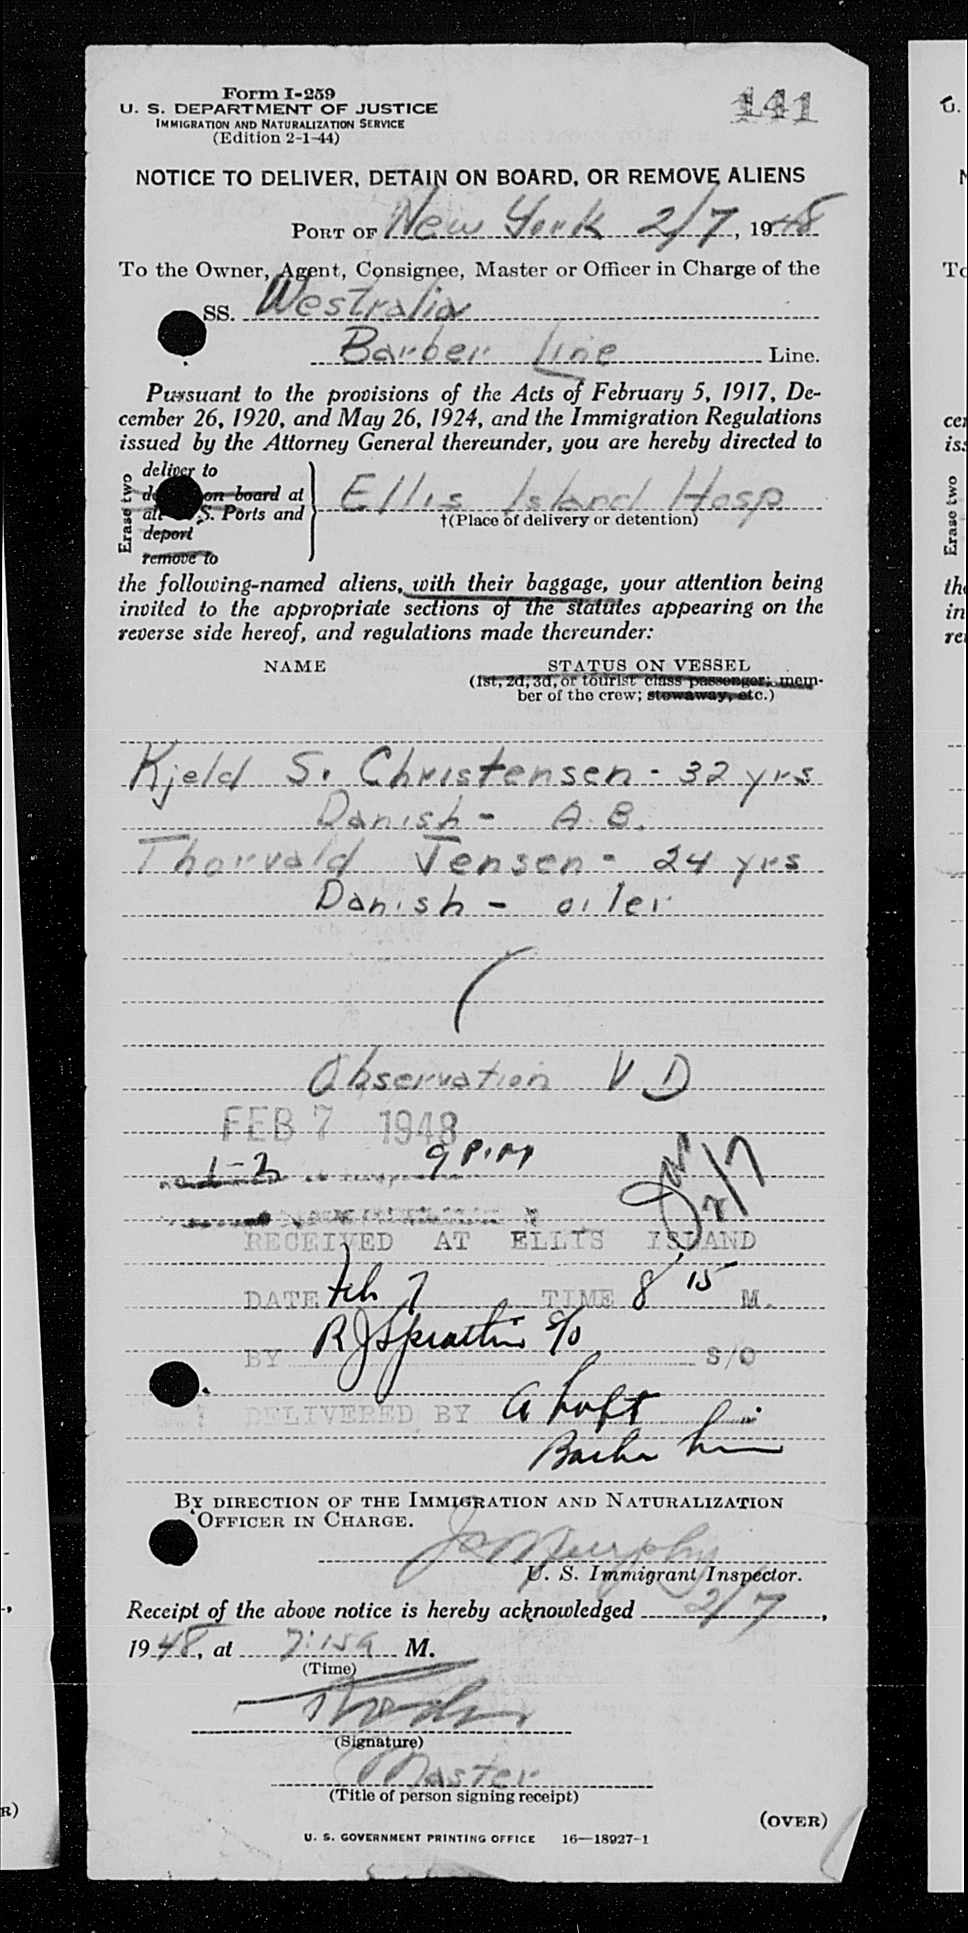 Form I-259
U. S. DEPARTMENT OF JUSTICE
IMMIGRATION AND NATURALIZATION SERVICE
(Edition 2-1-44)
141
NOTICE TO DELIVER, DETAIN ON BOARD, OR REMOVE ALIENS
PORT OF New York 2/7, 1948
To the Owner, Agent, Consignee, Master or Officer in Charge of the
SS. Westralia
Barber Line Line.
Pursuant to the provisions of the Acts of February 5, 1917, De-
cember 26, 1920, and May 26, 1924, and the Immigration Regulations
issued by the Attorney General thereunder, you are hereby directed to
Erase two
deliver to
on board at
all S. Ports and
deport
remove to
Ellis Island Hosp
†(Place of delivery or detention)
the following-named aliens, with their baggage, your attention being
invited to the appropriate sections of the statutes appearing on the
reverse side hereof, and regulations made thereunder:
NAME STATUS ON VESSEL
(1st, 2d, 3d, or tourist class passenger; mem-
ber of the crew; stowaway, etc.)
Kjeld S. Christensen - 32 yrs
Danish - A.B.
Thorvald Jensen - 24 yrs
Danish - oiler
Observation V D
FEB 7 1948
1-2 9 P.M
2/7
RECEIVED AT ELLIS ISLAND
DATE Feb 7 TIME 8 15 M.
BY S/O
DELIVERED BY A Loft
Barber Line
BY DIRECTION OF THE IMMIGRATION AND NATURALIZATION
OFFICER IN CHARGE.
Murphy
U. S. Immigrant Inspector.
Receipt of the above notice is hereby acknowledged 2/7,
1948, at 7:15 a M.
(Time)
(Signature)
Master
(Title of person signing receipt)
(OVER)
U. S. GOVERNMENT PRINTING OFFICE 16—18927-1